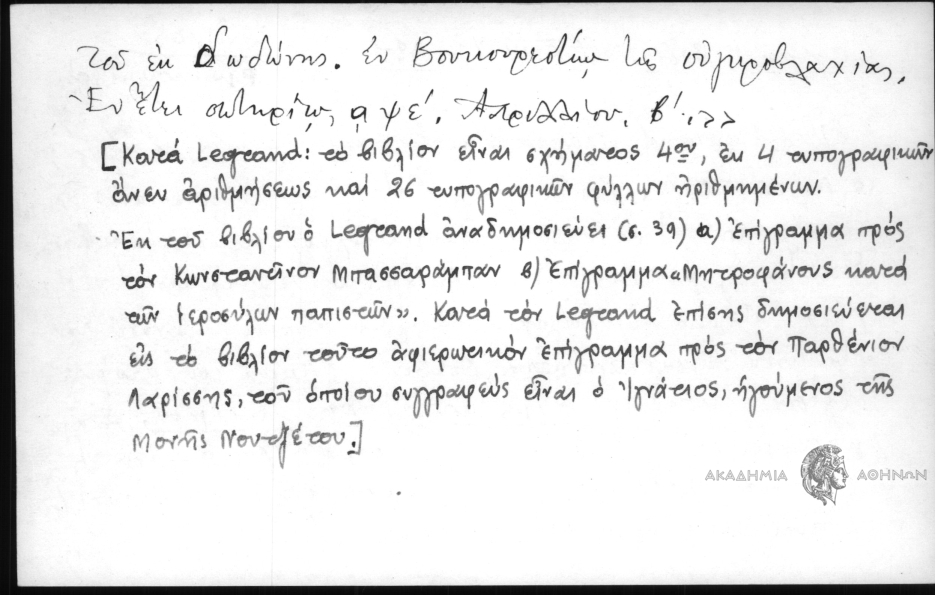 τοῦ ἐκ Δωδώνης. ἐν Βουκουρεστίῳ τῆς οὑγγροβλαχίας,
Ἐν ἔτει σωτηρίῳ, αψε΄. Ἀπριλλίου. β΄.»
[Κατά Legrand: τό βιβλίον εἶναι σχήματος 4ον, ἐκ 4 τυπογραφικῶν
ἄνευ ἀριθμήσεως καί 26 τυπογραφικῶν φύλλων ἠριθμημένων.
Ἐκ τοῦ βιβλίου ὁ Legrand ἀναδημοσιεύει (σ. 39) α) Ἐπίγραμμα πρός
τόν Κωνσταντῖνον Μπασσαράμπαν β) Ἐπίγραμμα «Μητροφάνους κατά
τῶν ἱεροσύλων παπιστῶν». Κατά τόν Legrand ἐπίσης δημοσιεύεται
εἰς τό βιβλίον τοῦτο ἀφιερωτικόν ἐπίγραμμα πρός τόν Παρθένιον
Λαρίσσης, τοῦ ὁποίου συγγραφεύς εἶναι ὁ Ἰγνάτιος, ἡγούμενος τῆς
Μονῆς Νουτζέτου.]
ΑΚΑΔΗΜΙΑ ΑΘΗΝΩΝ